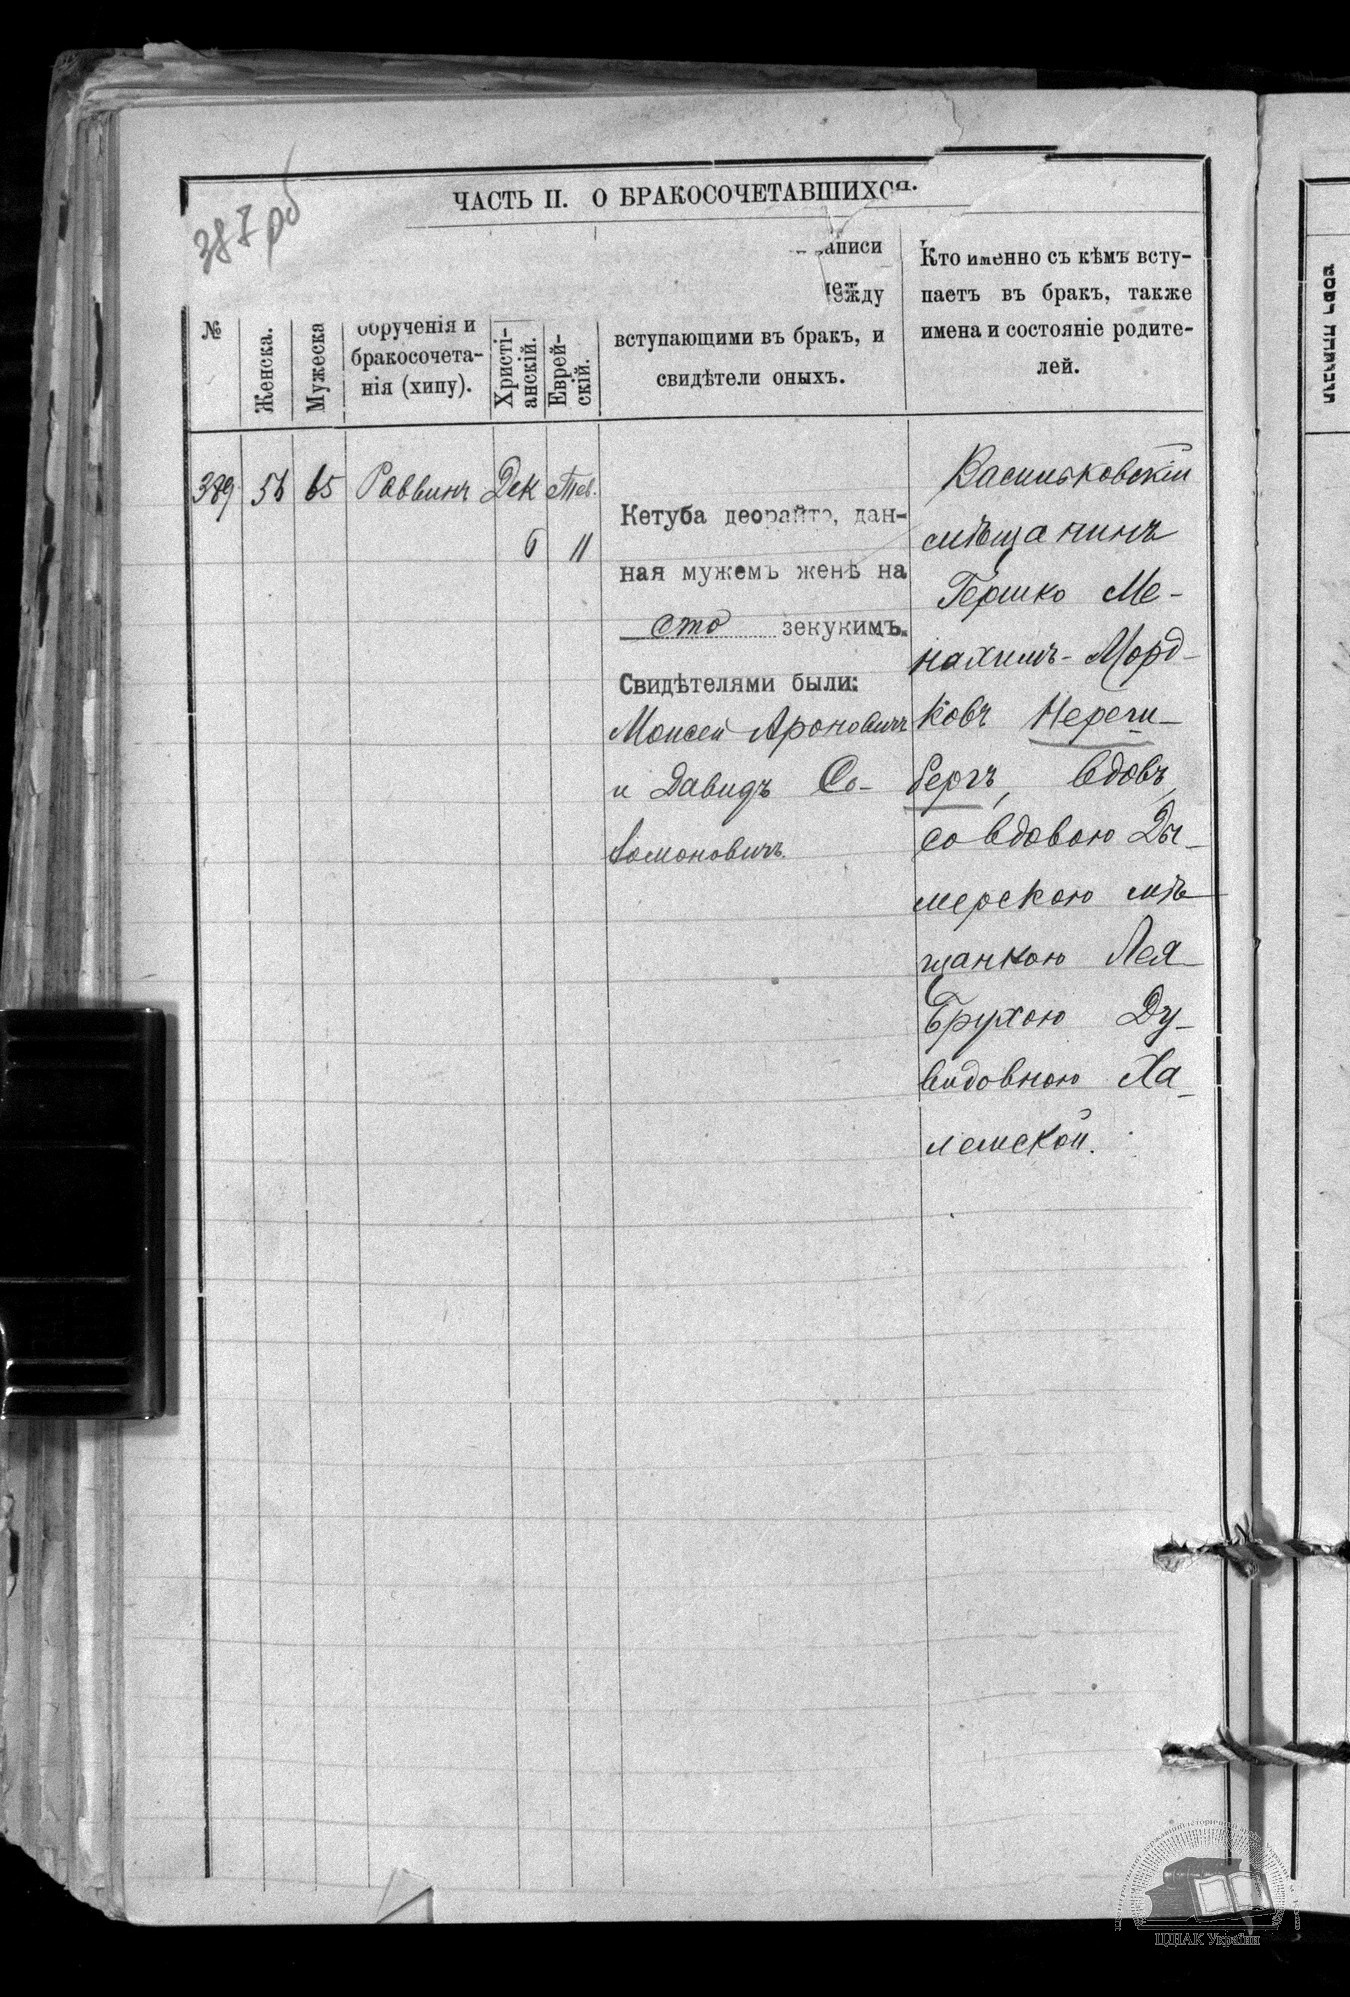 ЧАСТЬ II. О БРАКОСОЧЕТАВШИХСЯ.
387 рб
№
Женска.
Мужеска
обрученія и
бракосочета-
нія (хипу).
Христі-
анскій.
Еврей-
скій.
записи
между
вступающими въ бракъ, и
свидѣтели оныхъ.
Кто именно съ кѣмъ всту-
паетъ въ бракъ, также
имена и состояніе родите-
лей.
389 56 65 Раввинъ Дек Тев.
6 11
Кетуба деорайто, дан-
ная мужемъ женѣ на
сто зекукимъ.
Свидѣтелями были:
Моисей Ароновичъ
и Давидъ Со-
ломоновичъ.
Васильковскій
мѣщанинъ
Гершко Ме-
нахимъ-Морд-
ковъ
бергъ, вдовъ,
со вдовою Ды-
мерскою мѣ-
щанкою Лея-
Брухою Ду-
видовною Ха-
лемской.
ЦДІАК України